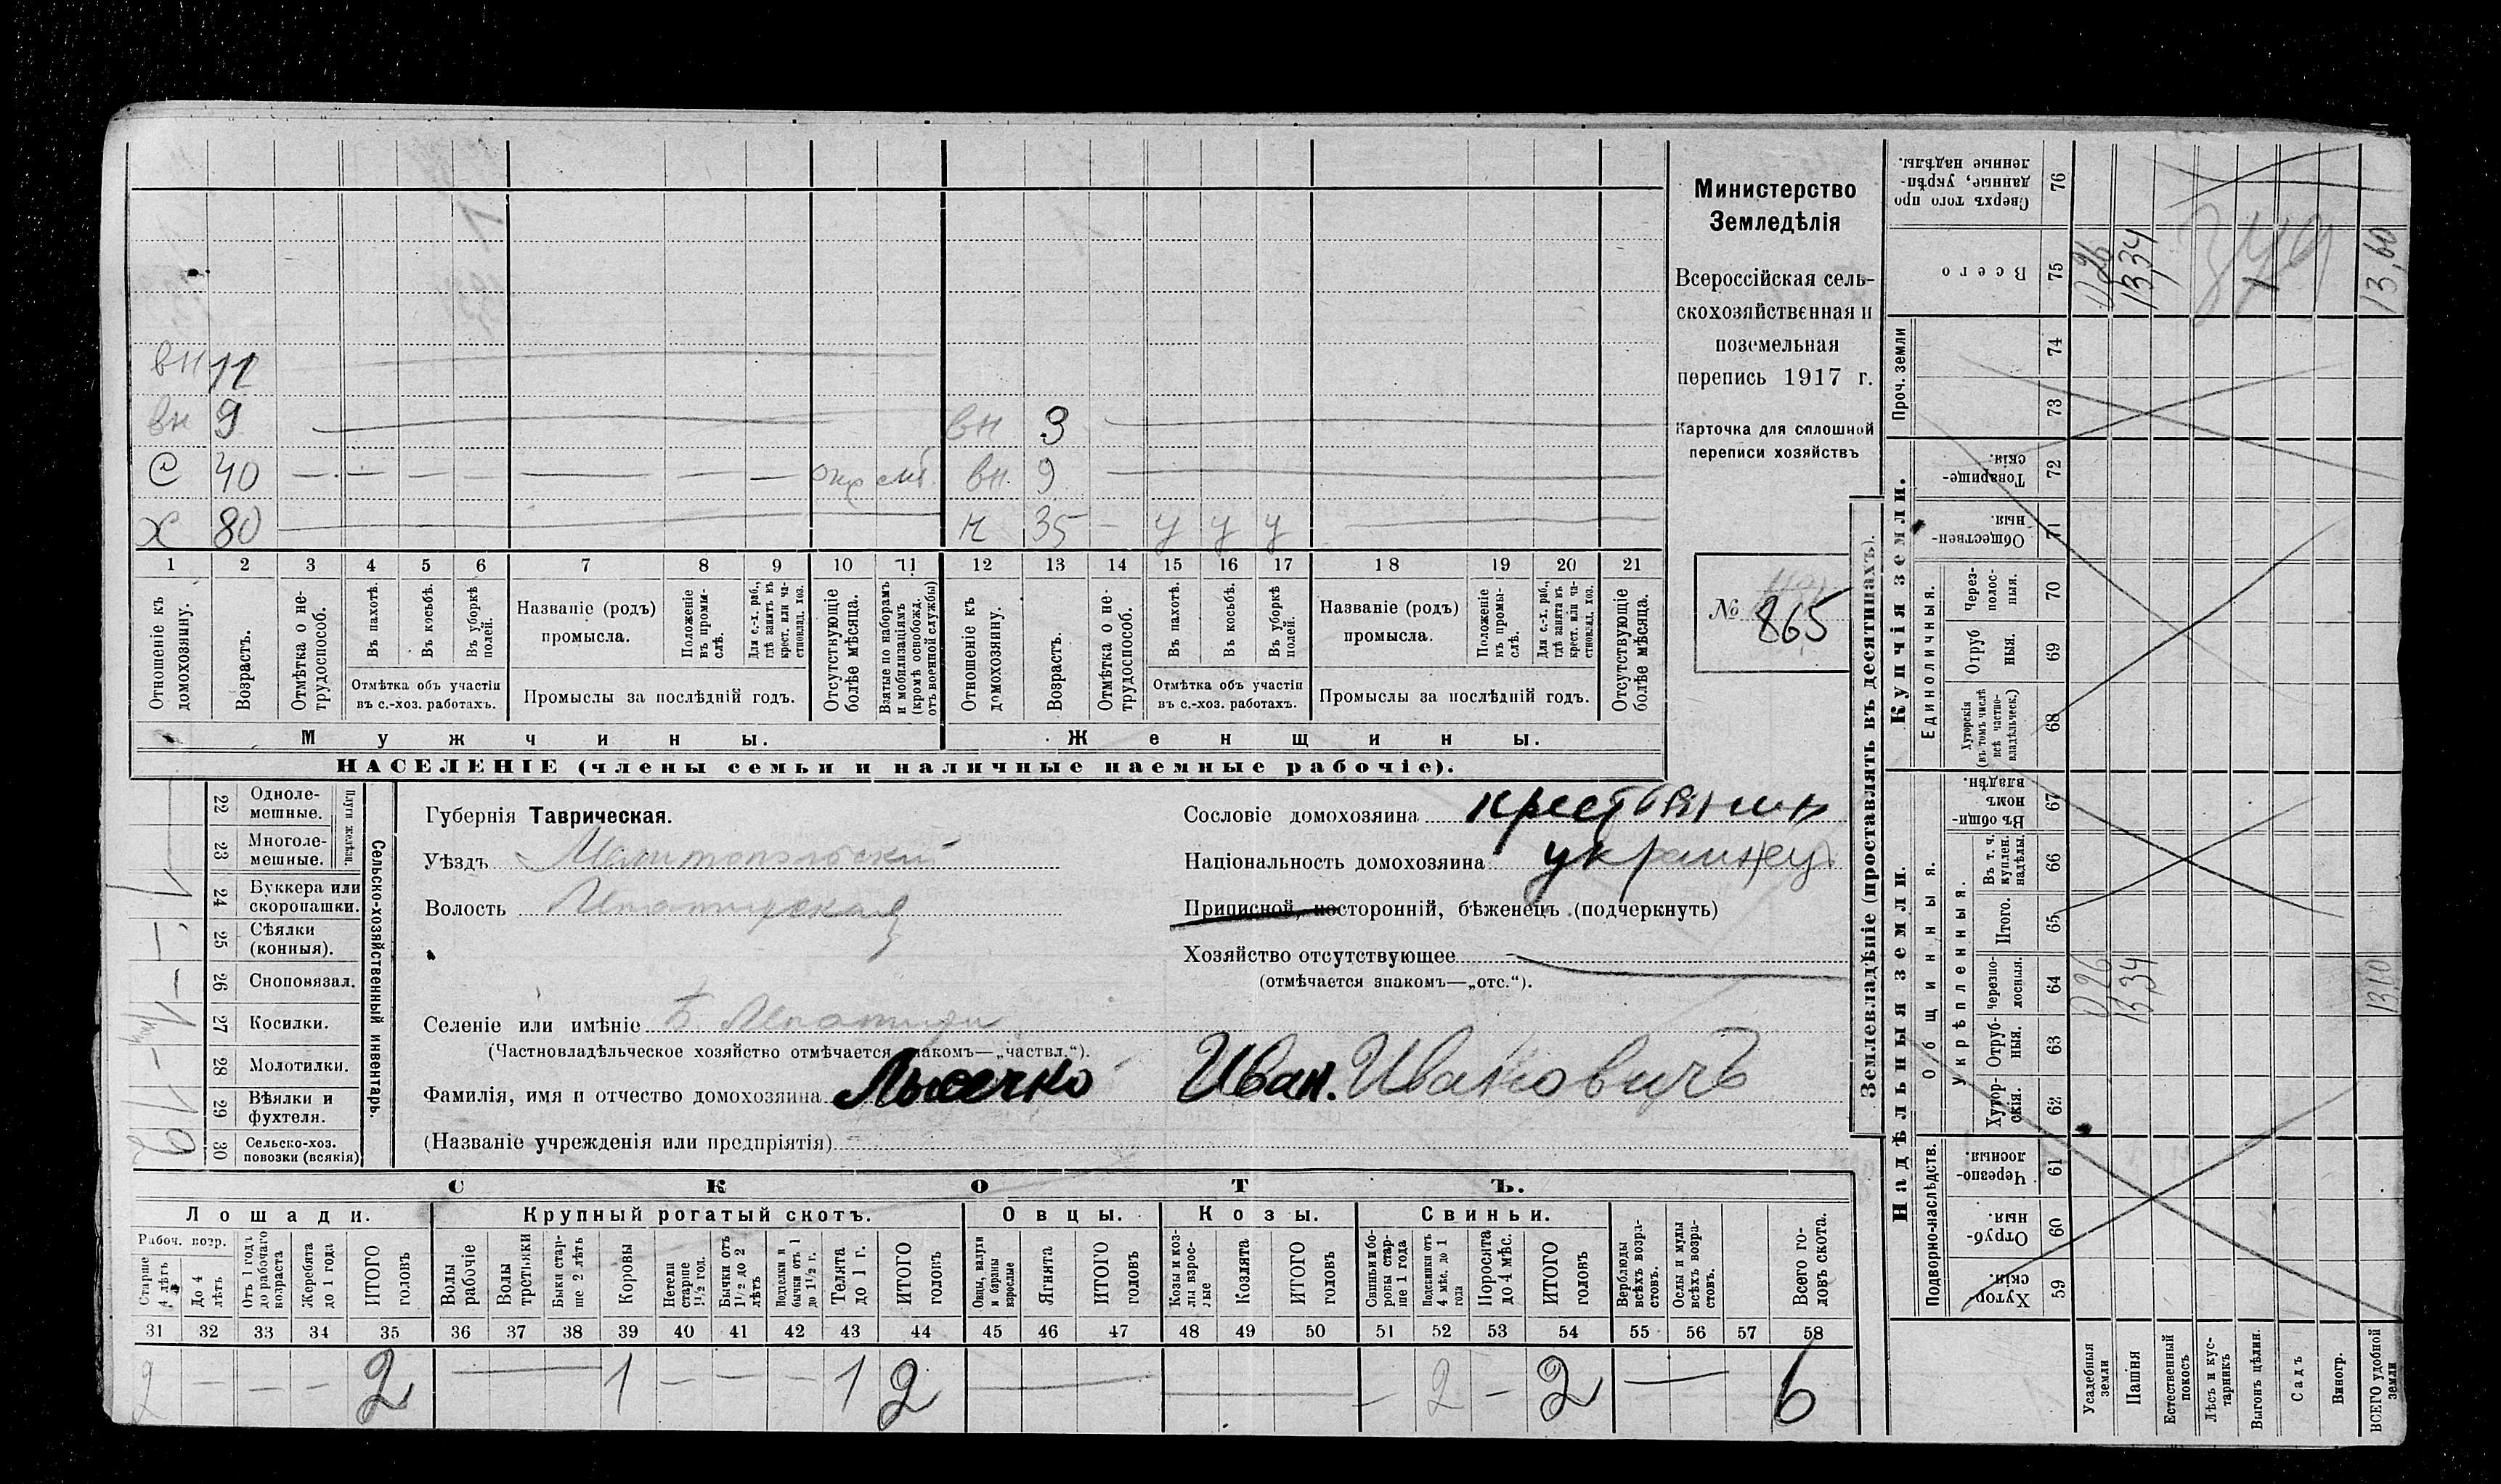 вн 12
вн 9 вн 3
С 40 — — — — — — — вн. 9
Х 80 35 — у у у
1 2 3 4 5 6 7 8 9 10 11 12 13 14 15 16 17 18 19 20 21
Отношеніе къ домохозяину.
Возрастъ.
Отмѣтка о нетрудоспособ.
Въ пахотѣ.
Въ косьбѣ.
Въ уборкѣ полей.
Отмѣтка объ участіи въ с.-хоз. работахъ.
Названіе (родъ) промысла.
Положеніе въ промыслѣ.
Для с.-х. раб., гдѣ занятъ въ крест. или частновлад. хоз.
Промыслы за послѣдній годъ.
Отсутствующіе болѣе мѣсяца.
Взятые по наборамъ и мобилизаціямъ (кромѣ освобожд. отъ военной службы)
Отношеніе къ домохозяину.
Возрастъ.
Отмѣтка о нетрудоспособ.
Въ пахотѣ.
Въ косьбѣ.
Въ уборкѣ полей.
Отмѣтка объ участіи въ с.-хоз. работахъ.
Названіе (родъ) промысла.
Положеніе въ промыслѣ.
Для с.-х. раб., гдѣ занята въ крест. или частновлад. хоз.
Промыслы за послѣдній годъ.
Отсутствующіе болѣе мѣсяца.
Мужчины.
Женщины.
НАСЕЛЕНІЕ (члены семьи и наличные наемные рабочіе).
Министерство
Земледѣлія
Всероссійская сель-
скохозяйственная и
поземельная
перепись 1917 г.
Карточка для сплошной
переписи хозяйствъ
№ 865
22 Однолемешные.
23 Многолемешные.
Плуги желѣз.
24 Буккера или скоропашки. 1
25 Сѣялки (конныя). —
26 Сноповязал. —
27 Косилки. 1
28 Молотилки. —
29 Вѣялки и фухтеля. 1
30 Сельско-хоз. повозки (всякія) 2
Сельско-хозяйственный инвентарь.
Губернія Таврическая.
Уѣздъ Мелитопольскій
Волость
Селеніе или имѣніе
(Частновладѣльческое хозяйство отмѣчается знакомъ—„частвл.“).
Фамилія, имя и отчество домохозяина Иван. Ивановичъ
(Названіе учрежденія или предпріятія)
Сословіе домохозяина крестьянинъ
Національность домохозяина украинецъ
Приписной, посторонній, бѣженецъ (подчеркнуть)
Хозяйство отсутствующее
(отмѣчается знакомъ—„отс.“).
СКОТЪ.
Лошади.
Крупный рогатый скотъ.
Овцы.
Козы.
Свиньи.
Рабоч. возр.
Старше 4 лѣтъ
До 4 лѣтъ
Отъ 1 года до рабочаго возраста
Жеребята до 1 года
ИТОГО головъ
Волы рабочіе
Волы третьяки
Быки старше 2 лѣтъ
Коровы
Нетели старше 1½ год.
Бычки отъ 1½ до 2 лѣтъ
Подтелки и бычки отъ 1 до 1½ г.
Телята до 1 г.
ИТОГО головъ
Овцы, валухи и бараны взрослые
Ягнята
ИТОГО головъ
Козы и козлы взрослые
Козлята
ИТОГО головъ
Свиньи и боровы старше 1 года
Подсвинки отъ 4 мѣс. до 1 года
Поросята до 4 мѣс.
ИТОГО головъ
Верблюды всѣхъ возрастовъ.
Ослы и мулы всѣхъ возрастовъ.
Всего головъ скота.
31 32 33 34 35 36 37 38 39 40 41 42 43 44 45 46 47 48 49 50 51 52 53 54 55 56 57 58
2 — — — 2 — 1 — — — 1 2 — — — 2 — 2 — 6
Землевладѣніе (проставлять въ десятинахъ).
Надѣльныя земли.
Купчія земли.
Проч. земли
Подворно-наслѣдств.
Общинныя.
Укрѣпленныя.
Единоличныя.
Хуторскія. 59
Отрубныя. 60
Черезполосныя. 61
Хуторскія. 62
Отрубныя. 63
Черезполосныя. 64 0,26 13,34 13,60
Итого. 65
Въ т. ч. куплен. надѣлы. 66
Въ общинномъ владѣн. 67
Хуторскія (въ томъ числѣ всѣ частновладѣльческ.) 68
Отрубныя. 69
Черезполосныя. 70
Общественныя. 71
Товарищескія. 72
73
74
Всего 75 0,26 13,34 13,60
Сверхъ того проданные, укрѣпленные надѣлы. 76
Усадебныя земли
Пашня
Естественный покосъ
Лѣсъ и кустарникъ
Выгонъ цѣлин.
Садъ
Виногр.
ВСЕГО удобной земли